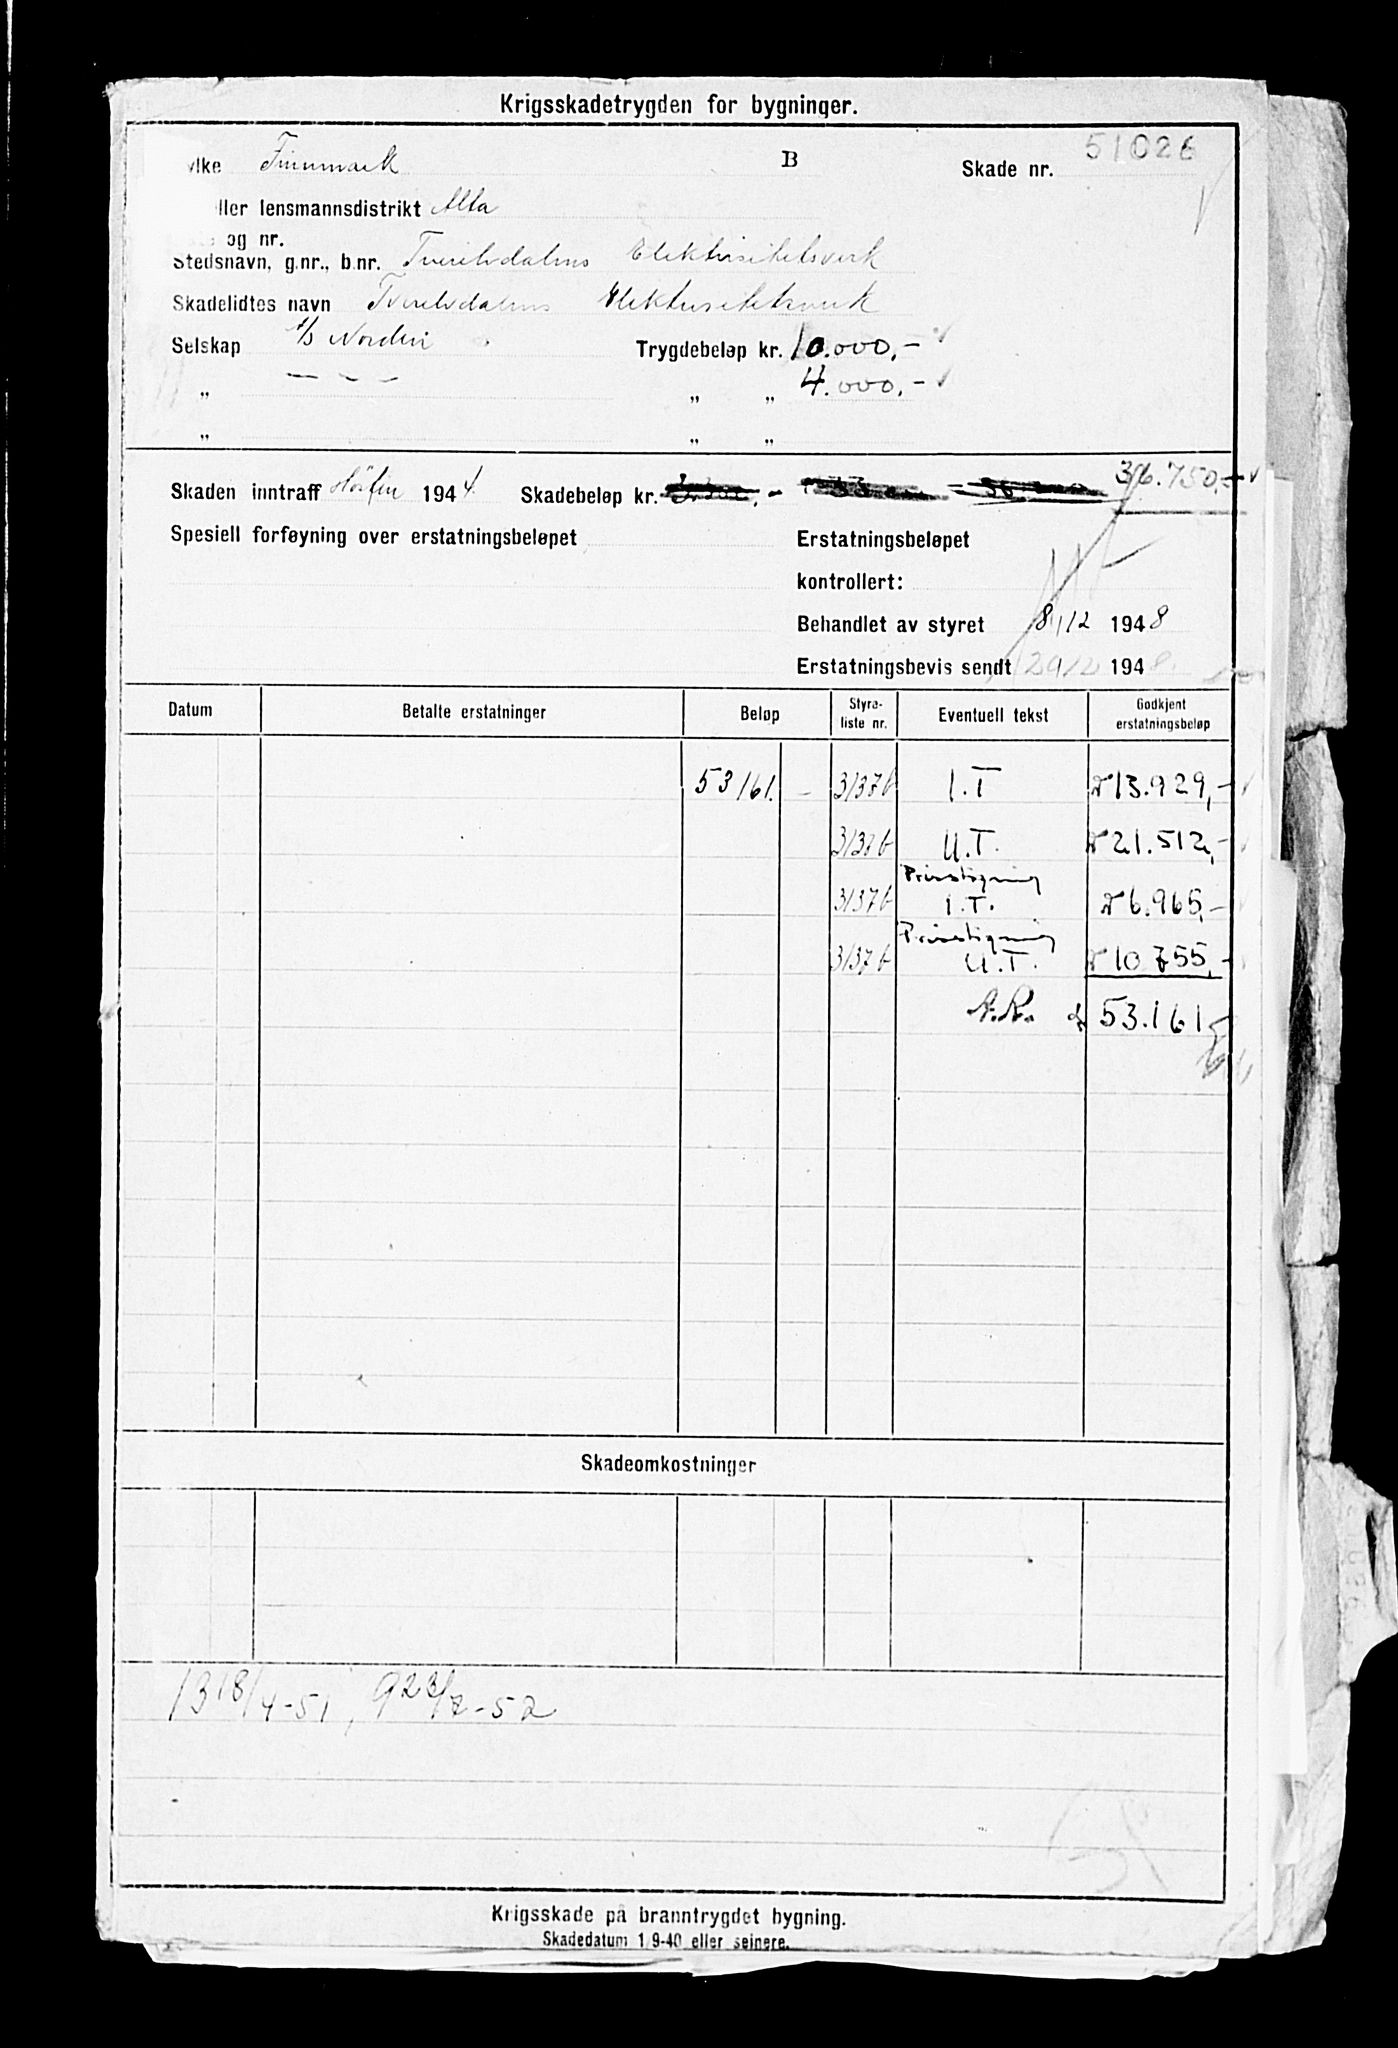 Krigsskadetrygden for bygninger.
ylke Finnmark B Skade nr. 51026
ller lensmannsdistrikt Alta
og nr.
Stedsnavn, g.nr., b.nr. Tverelvdalens Elektrisitetsverk
Skadelidtes navn Tverelvdalens Elektrisitetsverk
Selskap A/S Norden Trygdebeløp kr. 10.000,-
„ — — — „ „ 4.000,-
„ „ „
Skaden inntraff Høsten 1944 Skadebeløp kr. 36.750,-
Spesiell forføyning over erstatningsbeløpet Erstatningsbeløpet
kontrollert:
Behandlet av styret 8/12 1948
Erstatningsbevis sendt 29/12 1948
Datum Betalte erstatninger Beløp Styre- liste nr. Eventuell tekst Godkjent erstatningsbeløp
53161. - 3137b I.T 13.929,-
3137b U.T. 21.512,-
3137b Prisstigning I.T. 6.965,-
3137b Prisstigning U.T. 10 755,-
A.R. 53.161,-
Skadeomkostninger
13 18/4-51, 9 23/7-52
Krigsskade på branntrygdet bygning.
Skadedatum 1/9-40 eller seinere.